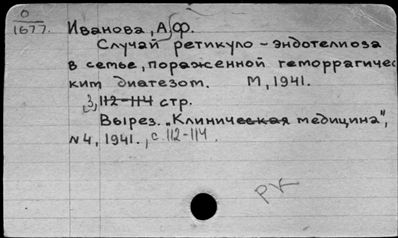 0
1677.
Иванова, А.Ф.
Случай ретикуло-эндотелиоза
в семье, пораженной геморрагичес
ким диатезом. М, 1941.
3, 112-114 стр.
Вырез. „Клиническая медицина",
N 4, 1941., с. 112-114
РК